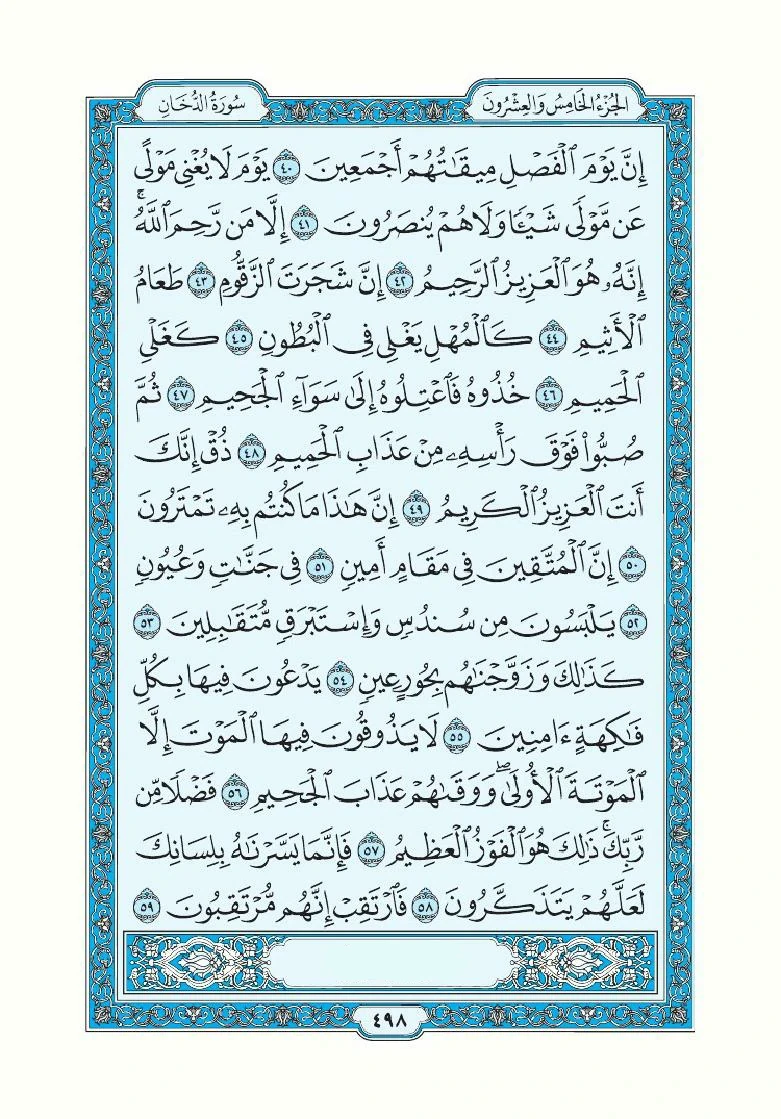 الجزء الخامس والعشرون
سورة الدخان
إِنَّ يَوۡمَ ٱلۡفَصۡلِ مِيقَٰتُهُمۡ أَجۡمَعِينَ ٤٠ يَوۡمَ لَا يُغۡنِي مَوۡلًى
عَن مَّوۡلٗى شَيۡـٔٗا وَلَا هُمۡ يُنصَرُونَ ٤١ إِلَّا مَن رَّحِمَ ٱللَّهُۚ
إِنَّهُۥ هُوَ ٱلۡعَزِيزُ ٱلرَّحِيمُ ٤٢ إِنَّ شَجَرَتَ ٱلزَّقُّومِ ٤٣ طَعَامُ
ٱلۡأَثِيمِ ٤٤ كَٱلۡمُهۡلِ يَغۡلِي فِي ٱلۡبُطُونِ ٤٥ كَغَلۡيِ
ٱلۡحَمِيمِ ٤٦ خُذُوهُ فَٱعۡتِلُوهُ إِلَىٰ سَوَآءِ ٱلۡجَحِيمِ ٤٧ ثُمَّ
صُبُّواْ فَوۡقَ رَأۡسِهِۦ مِنۡ عَذَابِ ٱلۡحَمِيمِ ٤٨ ذُقۡ إِنَّكَ
أَنتَ ٱلۡعَزِيزُ ٱلۡكَرِيمُ ٤٩ إِنَّ هَٰذَا مَا كُنتُم بِهِۦ تَمۡتَرُونَ
٥٠ إِنَّ ٱلۡمُتَّقِينَ فِي مَقَامٍ أَمِينٖ ٥١ فِي جَنَّٰتٖ وَعُيُونٖ
٥٢ يَلۡبَسُونَ مِن سُندُسٖ وَإِسۡتَبۡرَقٖ مُّتَقَٰبِلِينَ ٥٣
كَذَٰلِكَ وَزَوَّجۡنَٰهُم بِحُورٍ عِينٖ ٥٤ يَدۡعُونَ فِيهَا بِكُلِّ
فَٰكِهَةٍ ءَامِنِينَ ٥٥ لَا يَذُوقُونَ فِيهَا ٱلۡمَوۡتَ إِلَّا
ٱلۡمَوۡتَةَ ٱلۡأُولَىٰۖ وَوَقَىٰهُمۡ عَذَابَ ٱلۡجَحِيمِ ٥٦ فَضۡلٗا مِّن
رَّبِّكَۚ ذَٰلِكَ هُوَ ٱلۡفَوۡزُ ٱلۡعَظِيمُ ٥٧ فَإِنَّمَا يَسَّرۡنَٰهُ بِلِسَانِكَ
لَعَلَّهُمۡ يَتَذَكَّرُونَ ٥٨ فَٱرۡتَقِبۡ إِنَّهُم مُّرۡتَقِبُونَ ٥٩
٤٩٨